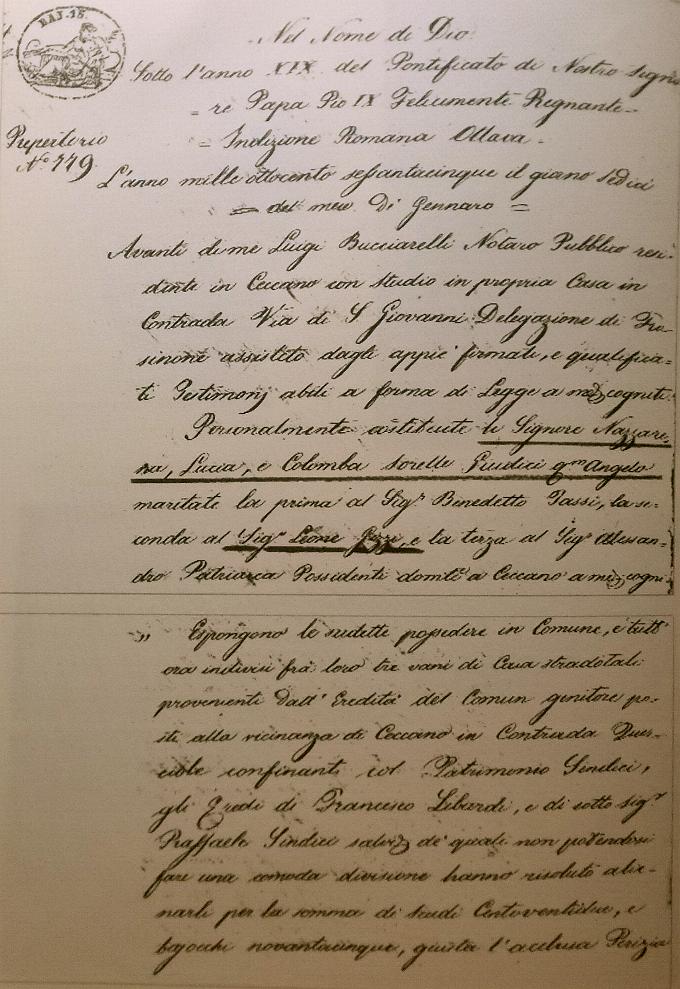 BAJ. 15.
Nel Nome di Dio
Sotto l'anno XIX del Pontificato di Nostro Signo
= re Papa Pio IX Felicemente Regnante =
Repertorio
N.º 779
= Indizione Romana Ottava =
L'anno mille ottocento sessantacinque il giorno sedici
= del mese Di Gennaro =
Avanti di me Luigi Bucciarelli Notaro Pubblico resi-
dente in Ceccano con studio in propria Casa in
Contrada Via di S Giovanni Delegazione di Fro-
sinone assistito dagli appiè firmati, e qualifica=
ti Testimonj abili a forma di Legge a me cogniti
Personalmente costituite le Signore Nazzare
na, Lucia, e Colomba sorelle Giudici qm Angelo
maritate la prima al Sigr. Benedetto Tassi, la se-
conda al Sigr Leone , e la terza al Sigr Alessan-
dro Patriarca Possidenti domti a Ceccano a me cogni
„ Espongono le sudette possedere in Comune, e tutt'
ora indivisi frà loro tre vani di Casa stradotali
provenienti Dall' Eredità del Comun genitore po-
sti alla vicinanza di Ceccano in Contrada Quer-
ciole confinanti col Patrimonio Sindici,
gli Eredi di Francesco Libardi, e di sotto sigr
Raffaele Sindici salvi de' quali non potendosi
fare una comoda divisione hanno risoluto alie-
narli per la somma di scudi Centoventidue, e
bajocchi novantacinque, giusta l'acclusa Perizia